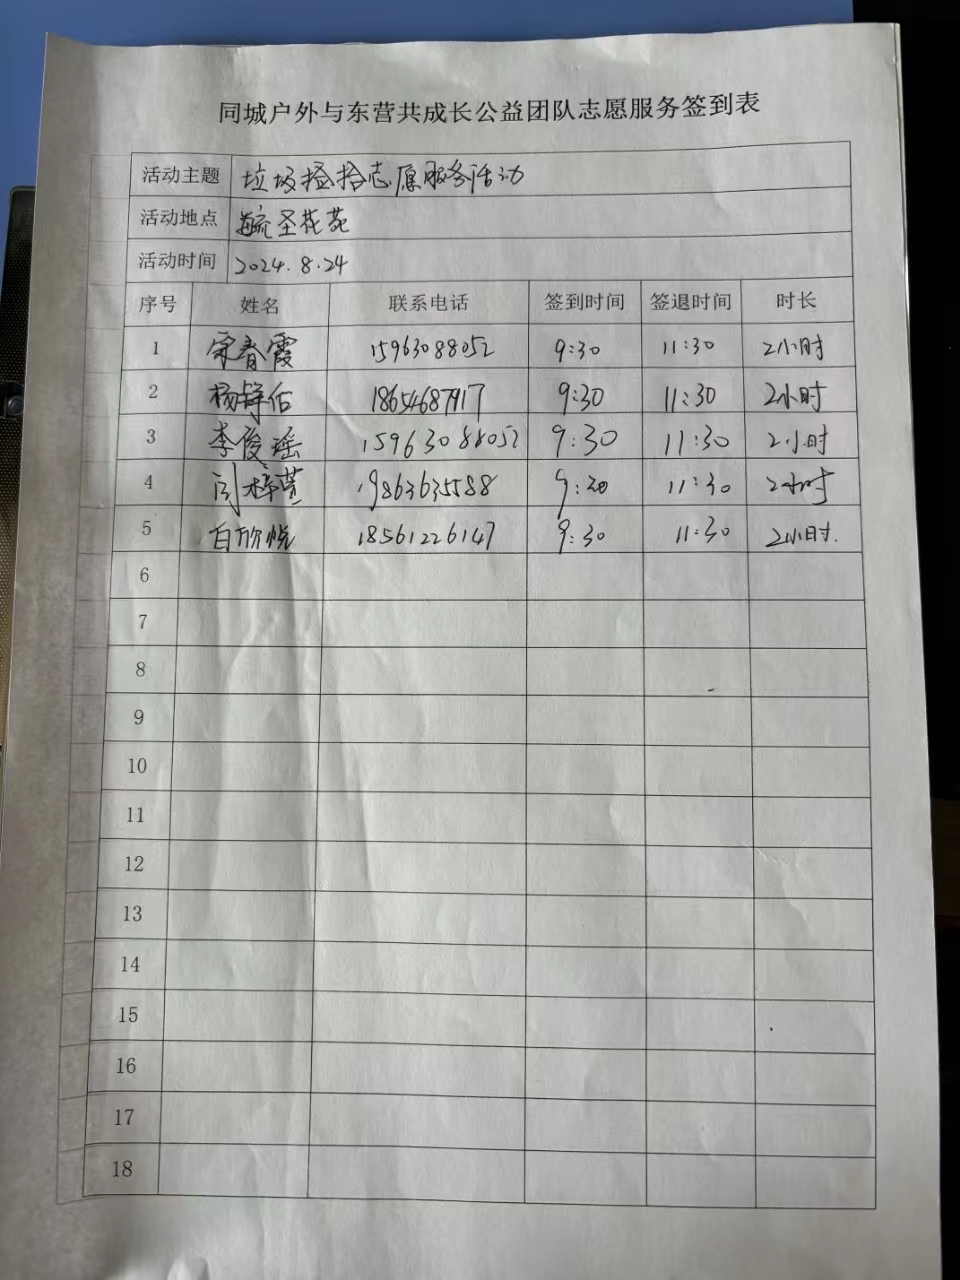 同城户外与东营共成长公益团队志愿服务签到表
活动主题 垃圾捡拾志愿服务活动
活动地点 毓圣花苑
活动时间 2024.8.24
序号 姓名 联系电话 签到时间 签退时间 时长
1 宋春霞 15963088052 9:30 11:30 2小时
2 杨静 9:30 11:30 2小时
3 李俊瑶 15963088052 9:30 11:30 2小时
4 19863635588 9:30 11:30 2小时
5 白欣悦 18561226147 9:30 11:30 2小时.
6
7
8
9
10
11
12
13
14
15
16
17
18